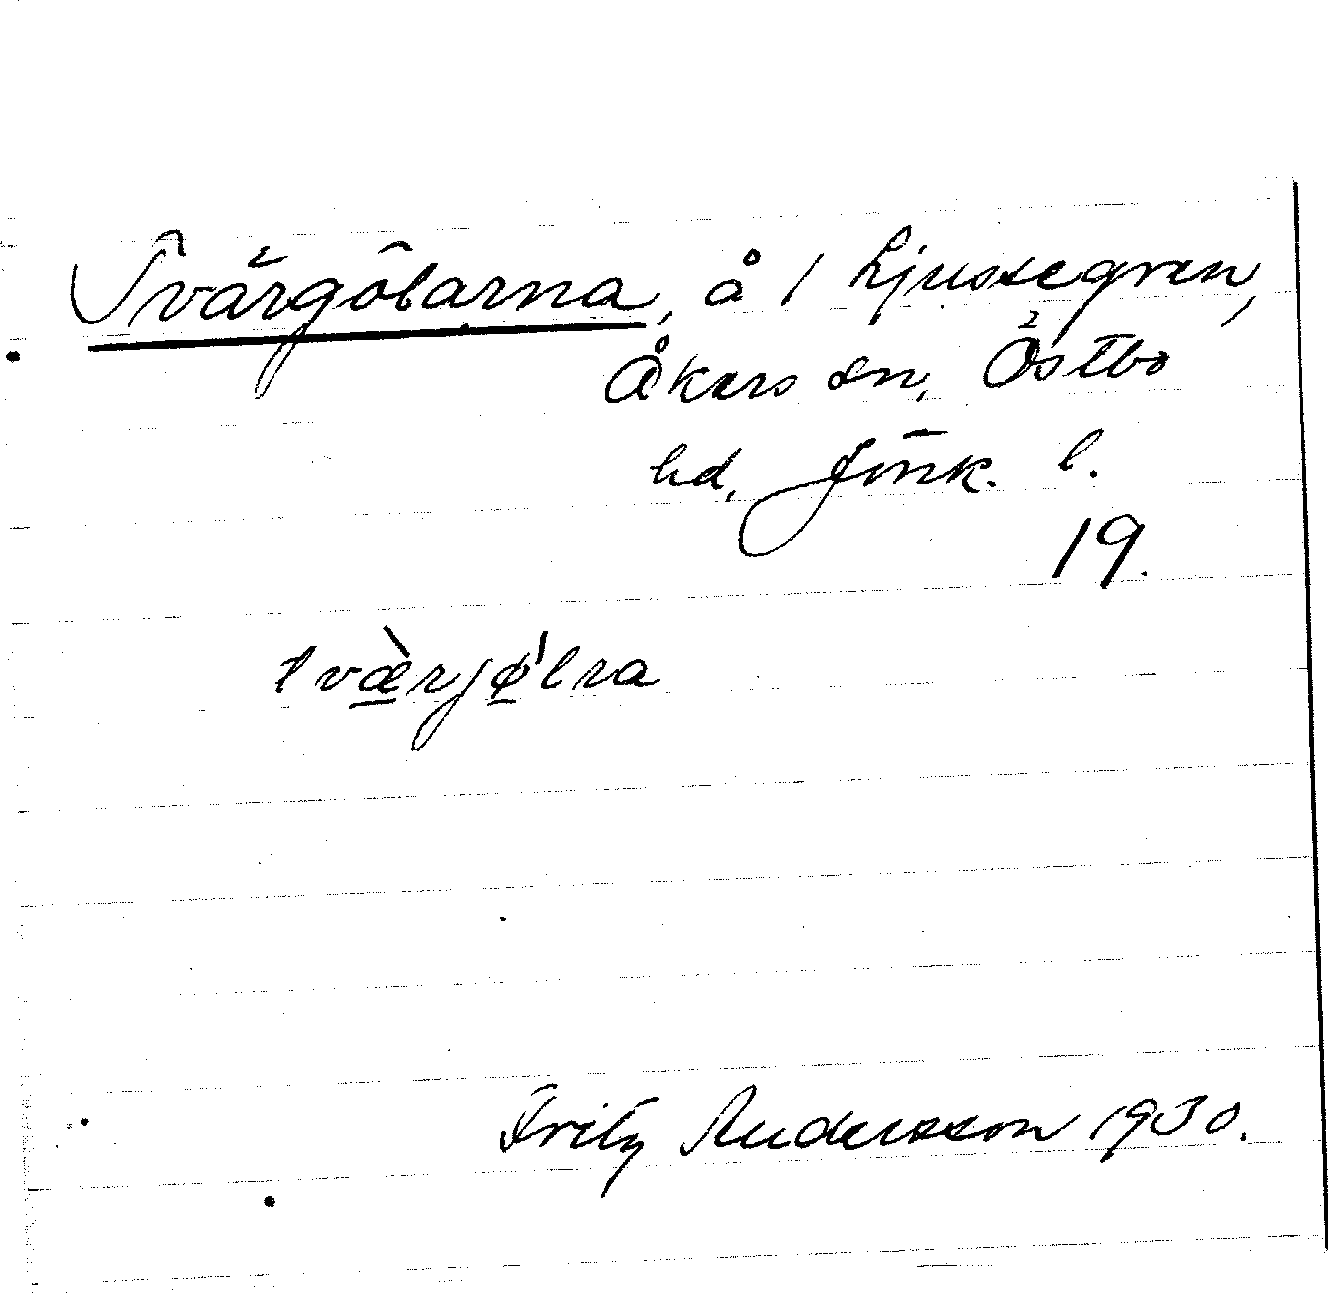 Tvärgölarna, å 1 Ljusstegren,
Åkers sn, Östbo
hd, Jönk. l.
19.
tvæ̀rjø'lra
Fritz Andersson 1930.